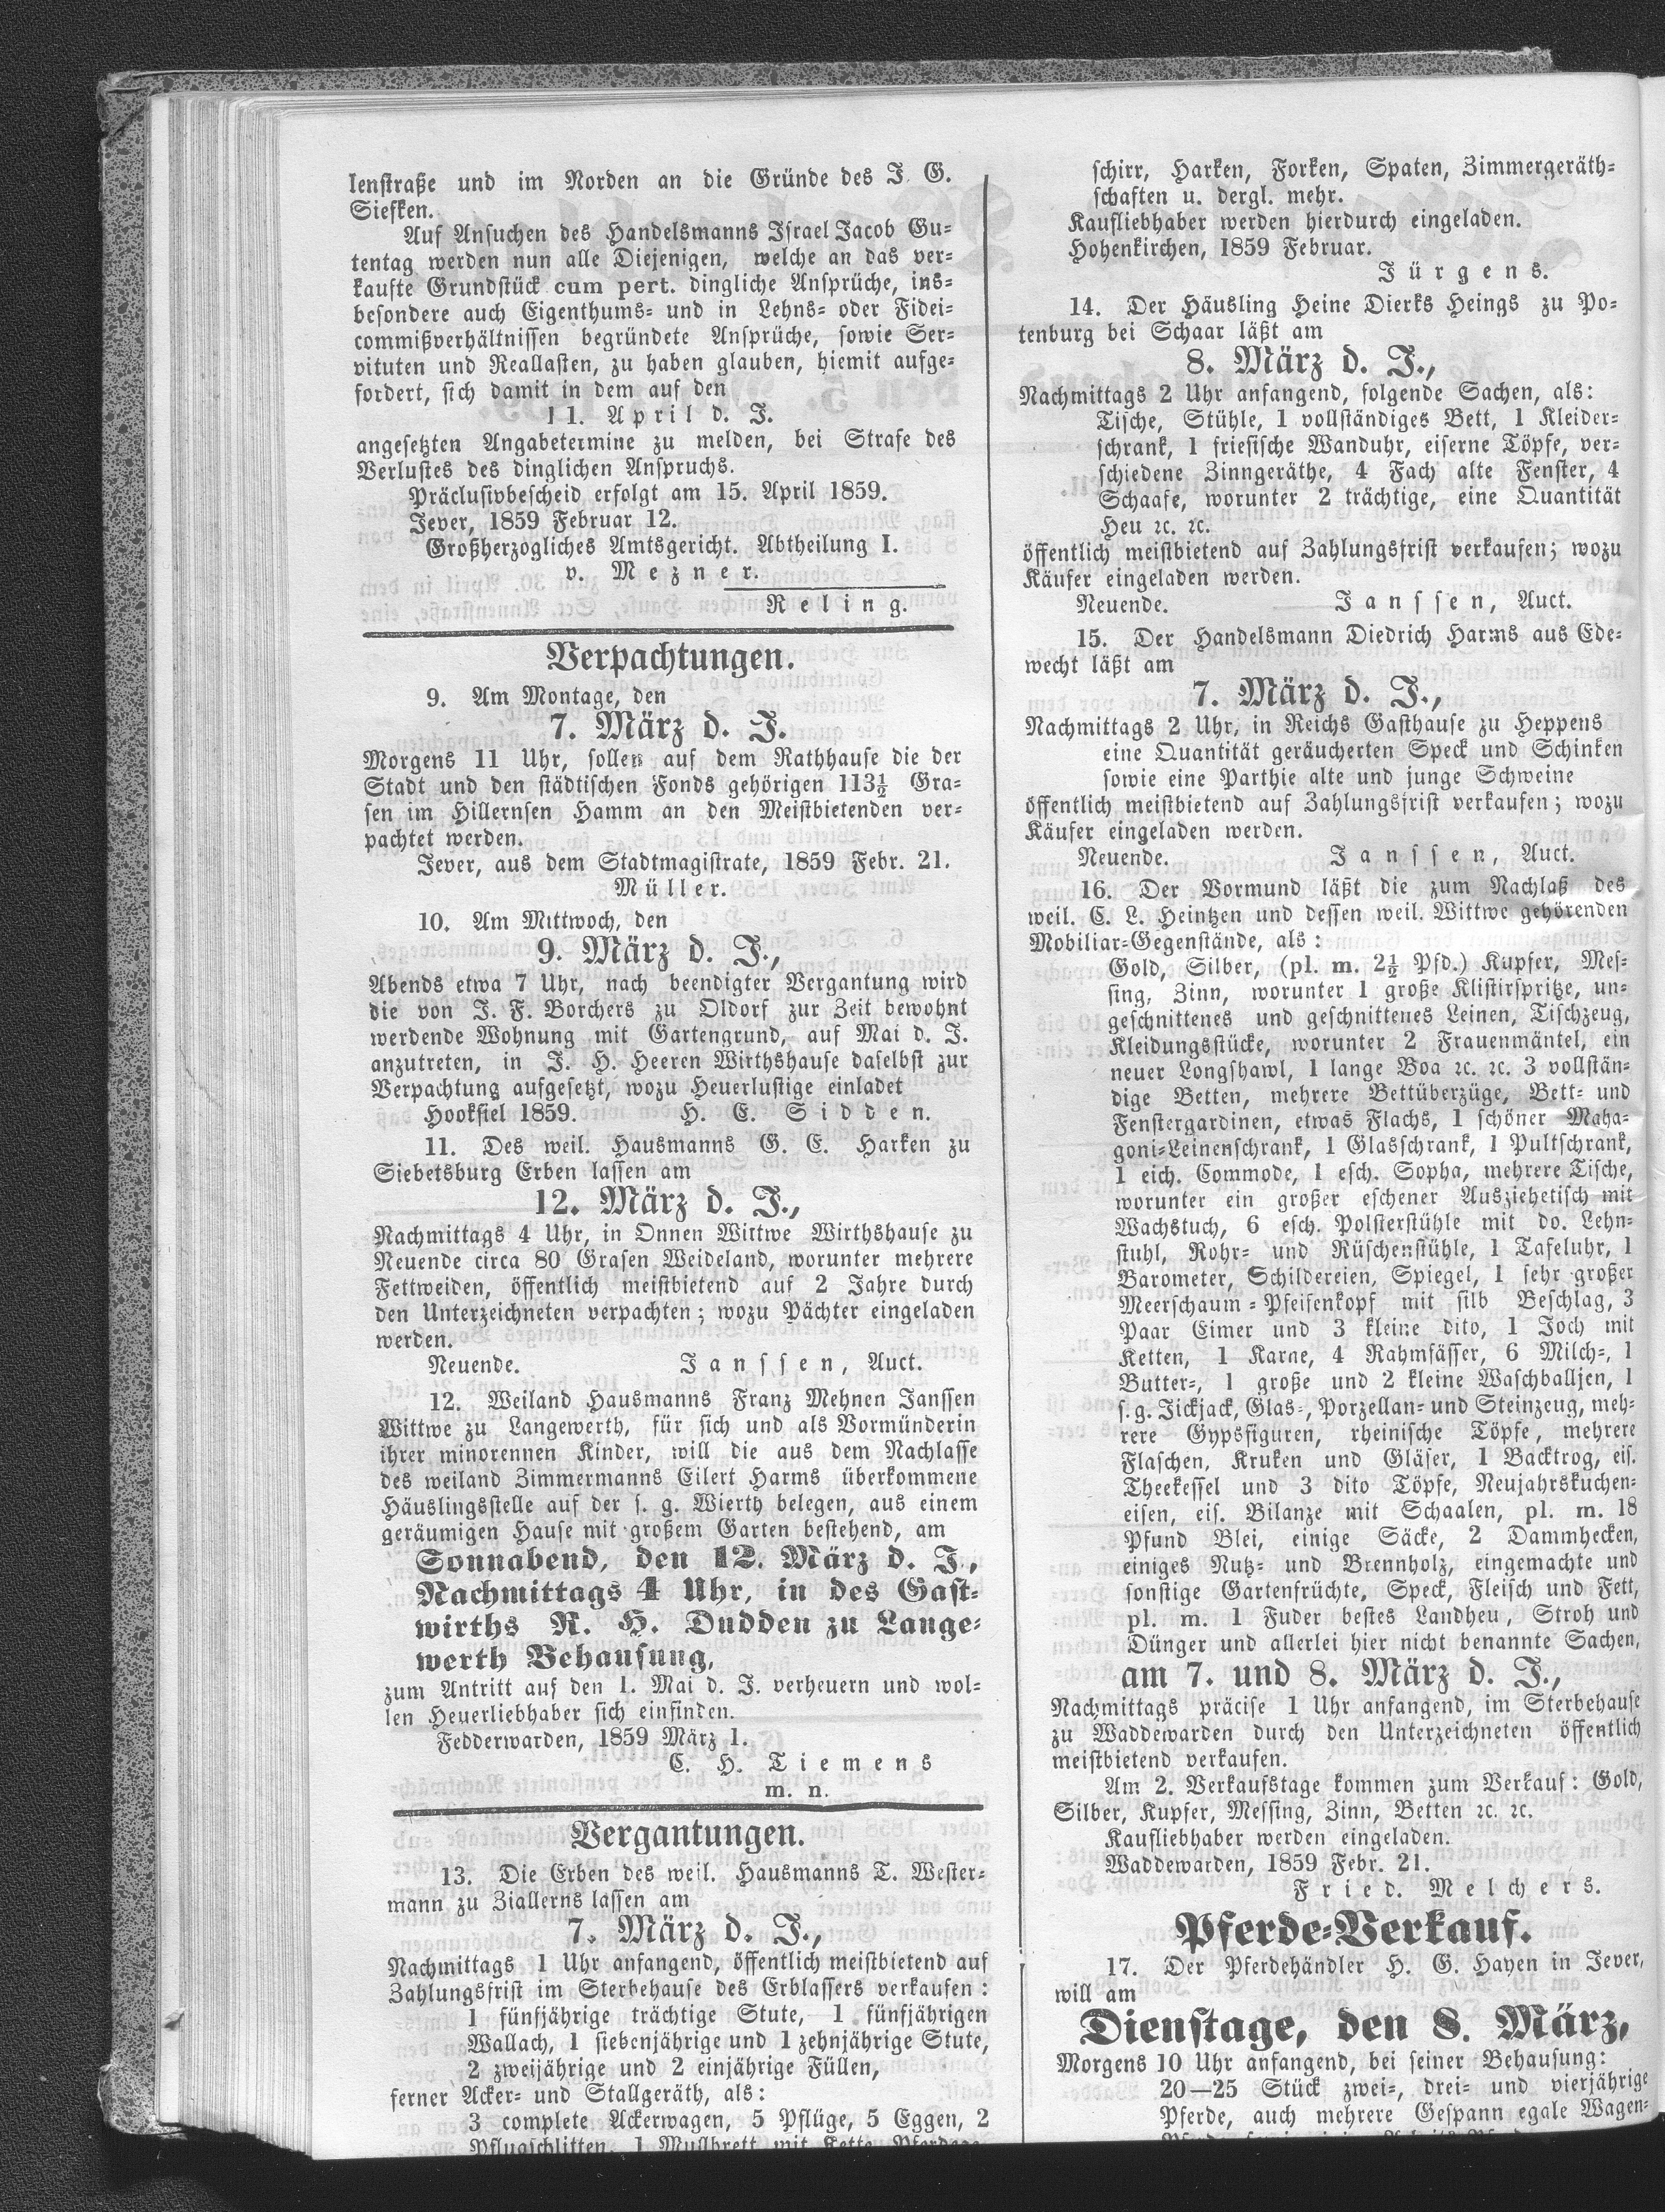 lenstraße und im Norden an die Gründe des J. G.
Siefken.
Auf Ansuchen des Handelsmanns Israel Jacob Gu-
tentag werden nun alle Diejenigen, welche an das ver-
kaufte Grundstück cum pert. dingliche Ansprüche, ins-
besondere auch Eigenthums- und in Lehns- oder Fidei-
commißverhältnissen begründete Ansprüche, sowie Ser-
vituten und Reallasten, zu haben glauben, hiemit aufge-
fordert, sich damit in dem auf den
11. April d. J.
angesetzten Angabetermine zu melden, bei Strafe des
Verlustes des dinglichen Anspruchs.
Präclusivbescheid erfolgt am 15. April 1859.
Jever, 1859 Februar 12.
Großherzogliches Amtsgericht. Abtheilung I.
v. Mezner.
Reling.
Verpachtungen.
9. Am Montage, den
7. März d. J.
Morgens 11 Uhr, sollen auf dem Rathhause die der
Stadt und den städtischen Fonds gehörigen 113½ Gra-
sen im Hillernsen Hamm an den Meistbietenden ver-
pachtet werden.
Jever, aus dem Stadtmagistrate, 1859 Febr. 21.
Müller.
10. Am Mittwoch, den
9. März d. J.,
Abends etwa 7 Uhr, nach beendigter Vergantung wird
die von J. F. Borchers zu Oldorf zur Zeit bewohnt
werdende Wohnung mit Gartengrund, auf Mai d. J.
anzutreten, in J. H. Heeren Wirthshause daselbst zur
Verpachtung aufgesetzt, wozu Heuerlustige einladet
Hooksiel 1859. H. E. Sidden.
11. Des weil. Hausmanns G. E. Harken zu
Siebetsburg Erben lassen am
12. März d. J.,
Nachmittags 4 Uhr, in Onnen Wittwe Wirthshause zu
Neuende circa 80 Grasen Weideland, worunter mehrere
Fettweiden, öffentlich meistbietend auf 2 Jahre durch
den Unterzeichneten verpachten; wozu Pächter eingeladen
werden.
Neuende. Janssen, Auct.
12. Weiland Hausmanns Franz Mehnen Janssen
Wittwe zu Langewerth, für sich und als Vormünderin
ihrer minorennen Kinder, will die aus dem Nachlasse
des weiland Zimmermanns Eilert Harms überkommene
Häuslingsstelle auf der s. g. Wierth belegen, aus einem
geräumigen Hause mit großem Garten bestehend, am
Sonnabend, den 12. März d. J.,
Nachmittags 4 Uhr, in des Gast-
wirths R. H. Dudden zu Lange-
werth Behausung,
zum Antritt auf den 1. Mai d. J. verheuern und wol-
len Heuerliebhaber sich einfinden.
Fedderwarden, 1859 März 1.
C. H. Tiemens
m. n.
Vergantungen.
13. Die Erben des weil. Hausmanns T. Wester-
mann zu Ziallerns lassen am
7. März d. J.,
Nachmittags 1 Uhr anfangend, öffentlich meistbietend auf
Zahlungsfrist im Sterbehause des Erblassers verkaufen:
1 fünfjährige trächtige Stute, 1 fünfjährigen
Wallach, 1 siebenjährige und 1 zehnjährige Stute,
2 zweijährige und 2 einjährige Füllen,
ferner Acker- und Stallgeräth, als:
3 complete Ackerwagen, 5 Pflüge, 5 Eggen, 2
Pflugschlitten, 1 Mullbrett mit Kette, Pferdege-
schirr, Harken, Forken, Spaten, Zimmergeräth-
schaften u. dergl. mehr.
Kaufliebhaber werden hierdurch eingeladen.
Hohenkirchen, 1859 Februar.
Jürgens.
14. Der Häusling Heine Dierks Heings zu Po-
tenburg bei Schaar läßt am
8. März d. J.,
Nachmittags 2 Uhr anfangend, folgende Sachen, als:
Tische, Stühle, 1 vollständiges Bett, 1 Kleider-
schrank, 1 friesische Wanduhr, eiserne Töpfe, ver-
schiedene Zinngeräthe, 4 Fach alte Fenster, 4
Schaafe, worunter 2 trächtige, eine Quantität
Heu ꝛc. ꝛc.
öffentlich meistbietend auf Zahlungsfrist verkaufen; wozu
Käufer eingeladen werden.
Neuende. Janssen, Auct.
15. Der Handelsmann Diedrich Harms aus Ede-
wecht läßt am
7. März d. J.,
Nachmittags 2 Uhr, in Reichs Gasthause zu Heppens
eine Quantität geräucherten Speck und Schinken
sowie eine Parthie alte und junge Schweine
öffentlich meistbietend auf Zahlungsfrist verkaufen; wozu
Käufer eingeladen werden.
Neuende. Janssen, Auct.
16. Der Vormund läßt die zum Nachlaß des
weil. C. L. Heintzen und dessen weil. Wittwe gehörenden
Mobiliar-Gegenstände, als:
Gold, Silber, (pl. m. 2½ Pfd.) Kupfer, Mes-
sing, Zinn, worunter 1 große Klistirspritze, un-
geschnittenes und geschnittenes Leinen, Tischzeug,
Kleidungsstücke, worunter 2 Frauenmäntel, ein
neuer Longshawl, 1 lange Boa ꝛc. ꝛc. 3 vollstän-
dige Betten, mehrere Bettüberzüge, Bett- und
Fenstergardinen, etwas Flachs, 1 schöner Maha-
goni-Leinenschrank, 1 Glasschrank, 1 Pultschrank,
1 eich. Commode, 1 esch. Sopha, mehrere Tische,
worunter ein großer eschener Ausziehetisch mit
Wachstuch, 6 esch. Polsterstühle mit do. Lehn-
stuhl, Rohr- und Rüschenstühle, 1 Tafeluhr, 1
Barometer, Schildereien, Spiegel, 1 sehr großer
Meerschaum-Pfeifenkopf mit silb Beschlag, 3
Paar Eimer und 3 kleine dito, 1 Joch mit
Ketten, 1 Karne, 4 Rahmfässer, 6 Milch-, 1
Butter-, 1 große und 2 kleine Waschballjen, 1
s. g. Jickjack, Glas-, Porzellan- und Steinzeug, meh-
rere Gypsfiguren, rheinische Töpfe, mehrere
Flaschen, Kruken und Gläser, 1 Backtrog, eis.
Theekessel und 3 dito Töpfe, Neujahrskuchen-
eisen, eis. Bilanze mit Schaalen, pl. m. 18
Pfund Blei, einige Säcke, 2 Dammhecken,
einiges Nutz- und Brennholz, eingemachte und
sonstige Gartenfrüchte, Speck, Fleisch und Fett,
pl. m. 1 Fuder bestes Landheu, Stroh und
Dünger und allerlei hier nicht benannte Sachen,
am 7. und 8. März d. J.,
Nachmittags präcise 1 Uhr anfangend, im Sterbehause
zu Waddewarden durch den Unterzeichneten öffentlich
meistbietend verkaufen.
Am 2. Verkaufstage kommen zum Verkauf: Gold,
Silber, Kupfer, Messing, Zinn, Betten ꝛc. ꝛc.
Kaufliebhaber werden eingeladen.
Waddewarden, 1859 Febr. 21.
Fried. Melchers.
Pferde-Verkauf.
17. Der Pferdehändler H. G. Hayen in Jever,
will am
Dienstage, den 8. März,
Morgens 10 Uhr anfangend, bei seiner Behausung:
20—25 Stück zwei-, drei- und vierjährige
Pferde, auch mehrere Gespann egale Wagen-